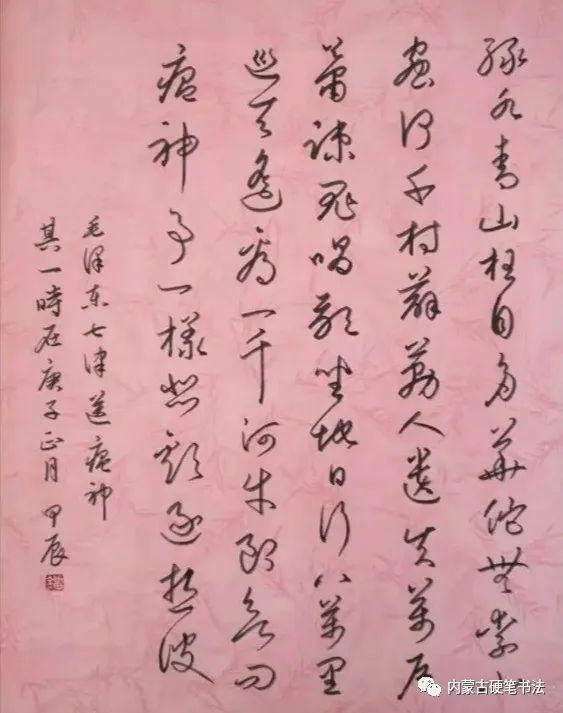 綠水青山枉自多華佗無奈小
虫何千村薜荔人遺矢萬户
蕭疎鬼唱歌坐地日行八萬里
巡天遙看一千河牛郎欲问
瘟神事一樣悲歡逐逝波
毛泽东七律送瘟神
其一時在庚子正月甲辰
内蒙古硬笔书法